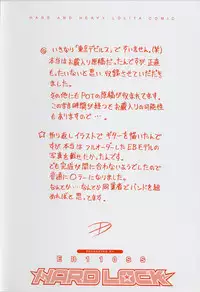 HARD AND HEAVY LOLITA COMIC
☆いきなり「東京デビルス」ですいません。(笑)
本当はお蔵入り原稿だったんですが正直
もったいないと思い収録させていただき
ました。
その他にもPOTの原稿が収まれてます。
この本も時間が経つとお蔵入りの可能性
もありますので…
☆折り返しイラストでギターを描いたんで
すが本当はフルオーダーしたEBモデルの
写真を載せたかったんです。
ども完成が間に合わないようでしたので
普通にカラーになりました。
なんてか…なんてか同業者とバンドを組
めればと思ってます。
PRESENTED BY
EB110SS
HARD LOCK